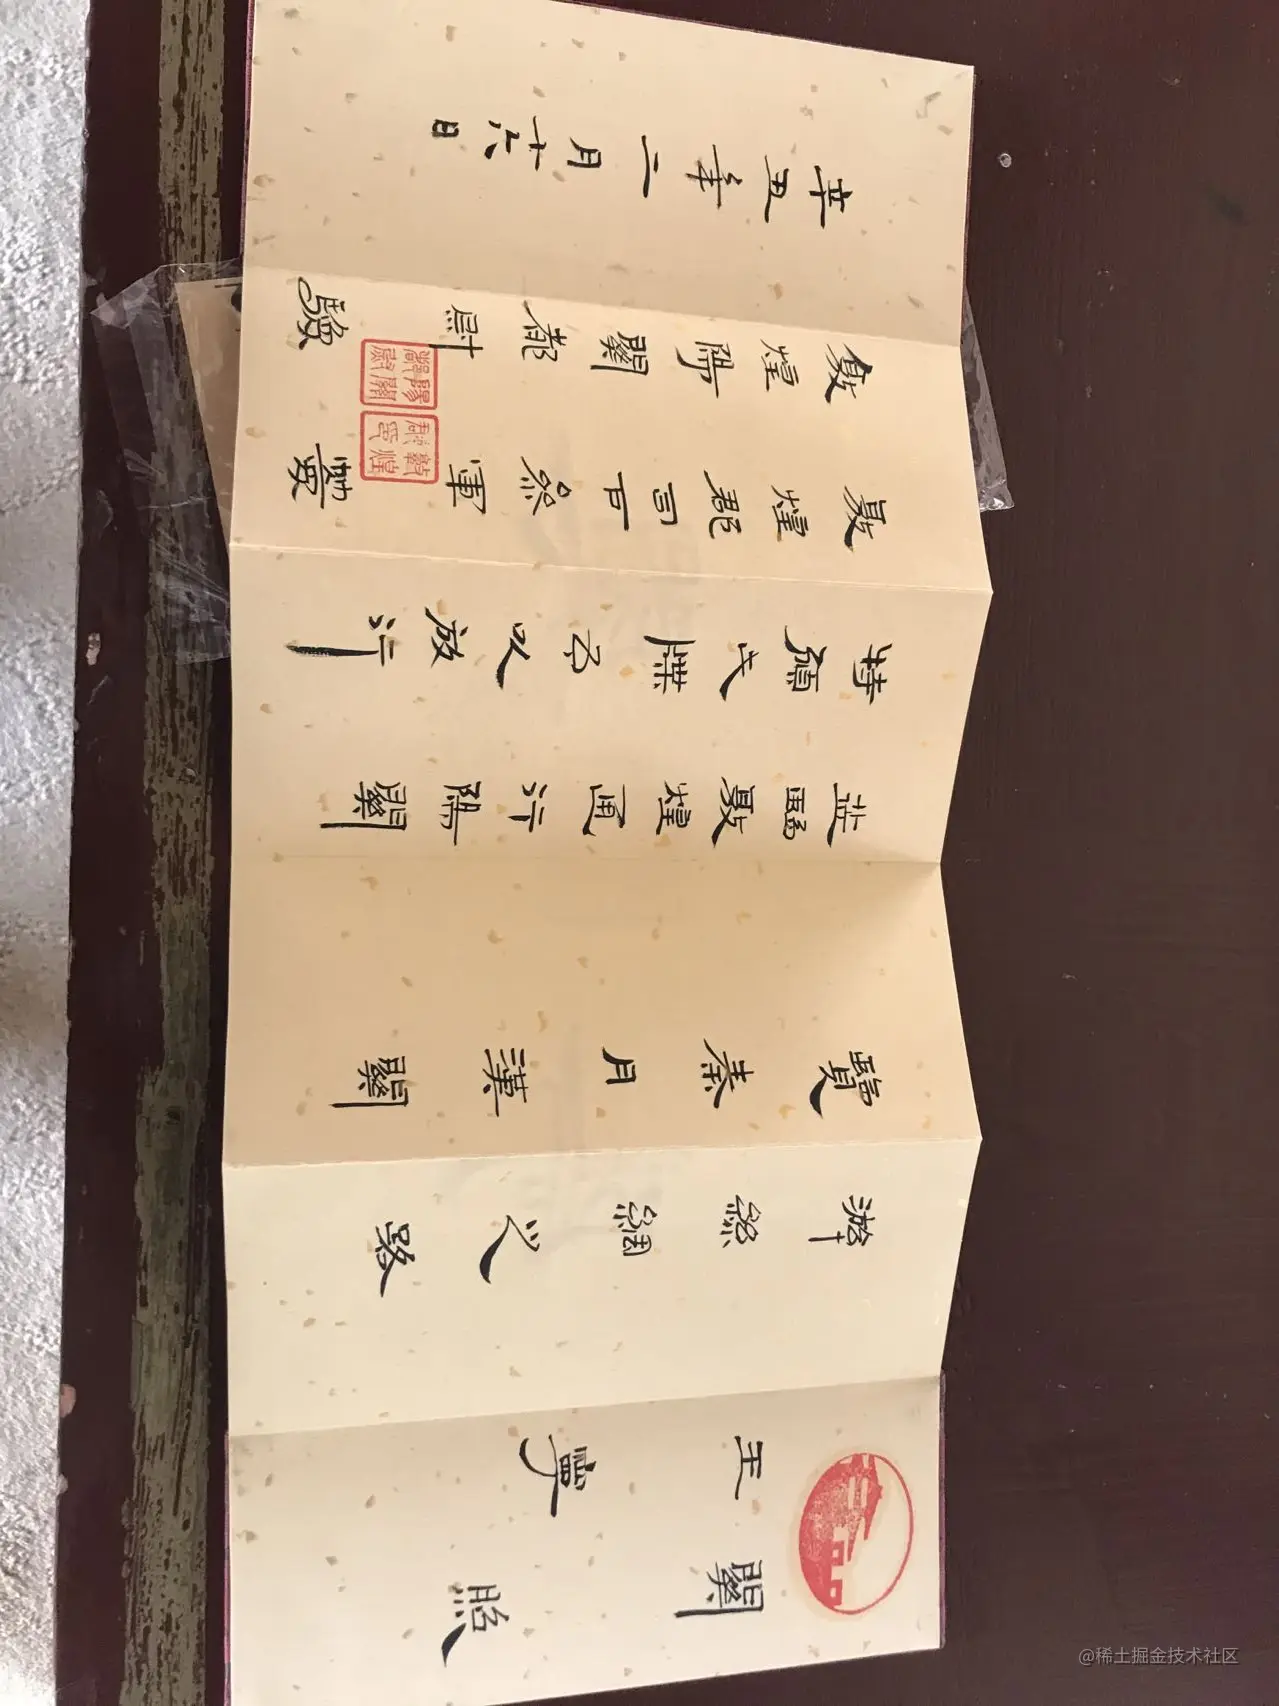 關照
王寧
游絲綢之路
覽秦月漢關
敦煌通行陽關
特頒此牒予以放行
敦煌郡司戶參軍
敦煌陽關都尉 驗
敦煌郡印
陽關都尉
辛丑年二月十六日
@稀土掘金技术社区